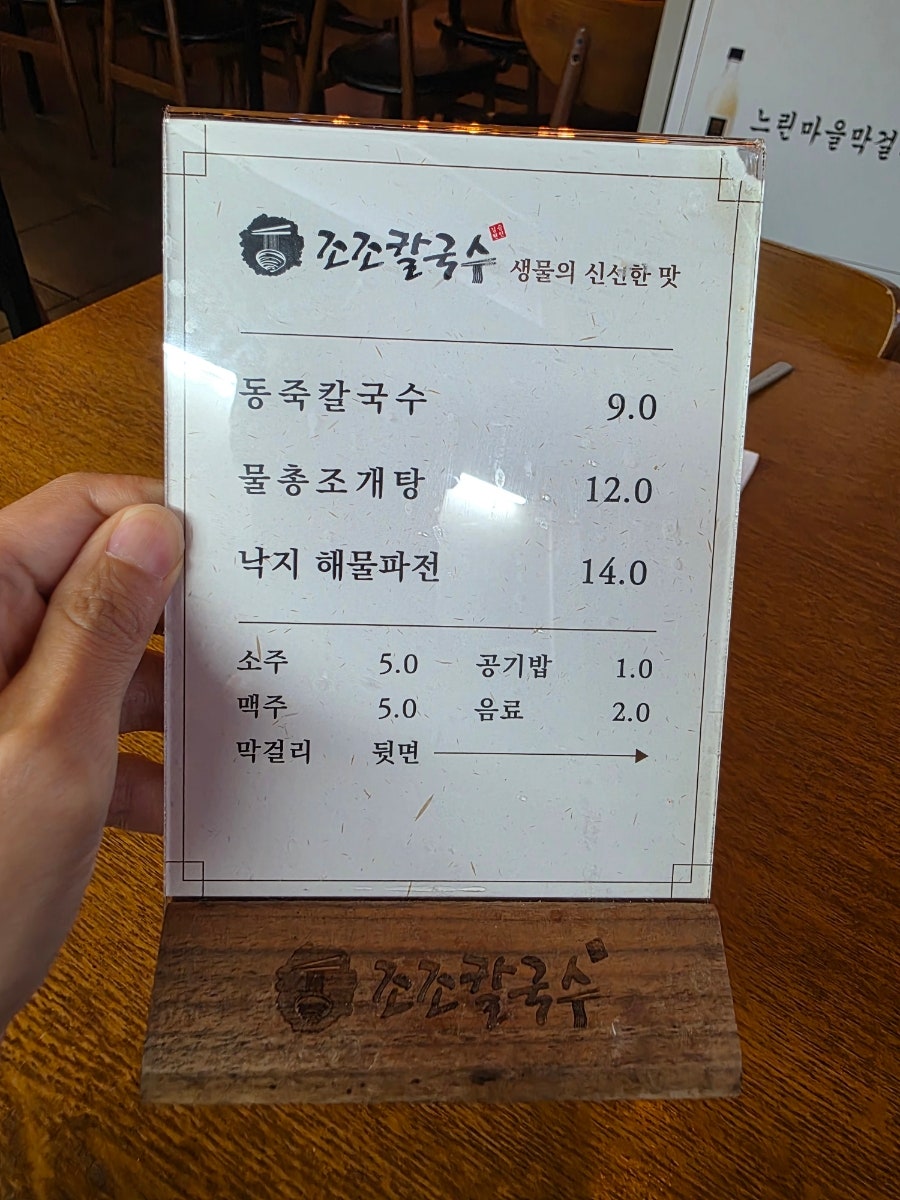 느린마을막걸
조조칼국수 생물의 신선한 맛
동죽칼국수 9.0
물총조개탕 12.0
낙지 해물파전 14.0
소주 5.0 공기밥 1.0
맥주 5.0 음료 2.0
막걸리 뒷면
조조칼국수